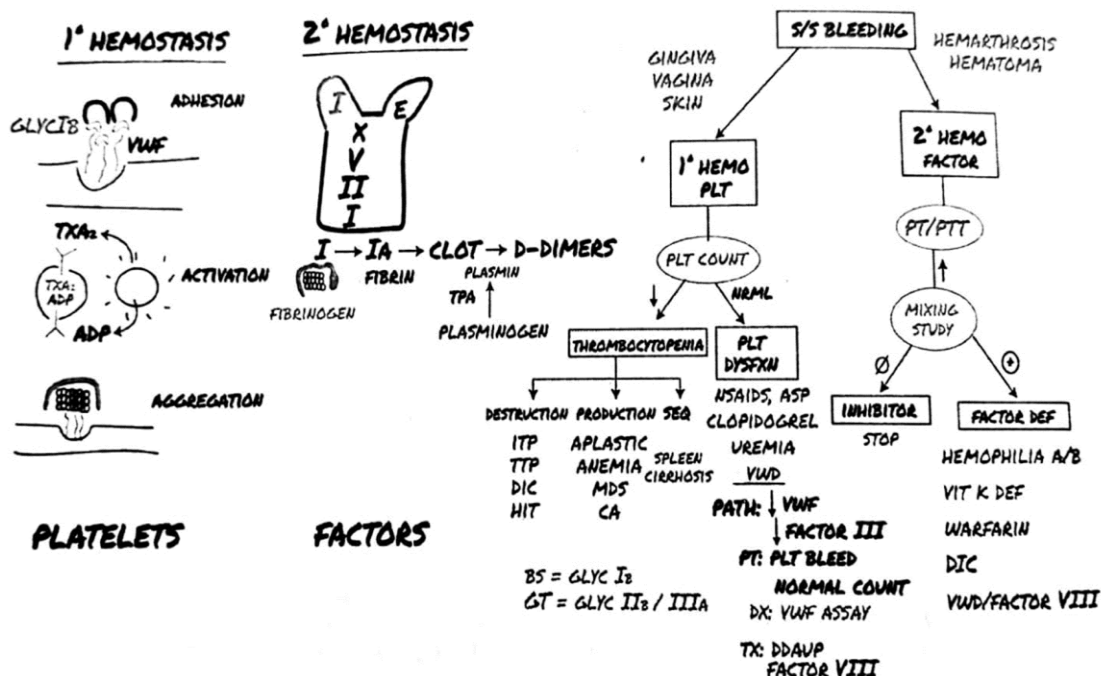 1° HEMOSTASIS
ADHESION
GLYCIB
VWF
TXA₂
TXA₂
ADP
ACTIVATION
ADP
AGGREGATION
PLATELETS
2° HEMOSTASIS
I
E
X
V
II
I
I → IA → CLOT → D-DIMERS
FIBRINOGEN
FIBRIN
PLASMIN
TPA
PLASMINOGEN
FACTORS
S/S BLEEDING
GINGIVA
VAGINA
SKIN
HEMARTHROSIS
HEMATOMA
1° HEMO
PLT
PLT COUNT
↓
NRML
THROMBOCYTOPENIA
DESTRUCTION
ITP
TTP
DIC
HIT
PRODUCTION
APLASTIC
ANEMIA
MDS
CA
SEQ
SPLEEN
CIRRHOSIS
PLT
DYSFXN
NSAIDS, ASP
CLOPIDOGREL
UREMIA
VWD
PATH: ↓ VWF
↓ FACTOR III
PT: PLT BLEED
NORMAL COUNT
DX: VWF ASSAY
TX: DDAUP
FACTOR VIII
BS = GLYC IB
GT = GLYC IIB / IIIA
2° HEMO
FACTOR
PT/PTT
↑
MIXING
STUDY
Ø
+
INHIBITOR
STOP
FACTOR DEF
HEMOPHILIA A/B
VIT K DEF
WARFARIN
DIC
VWD/FACTOR VIII